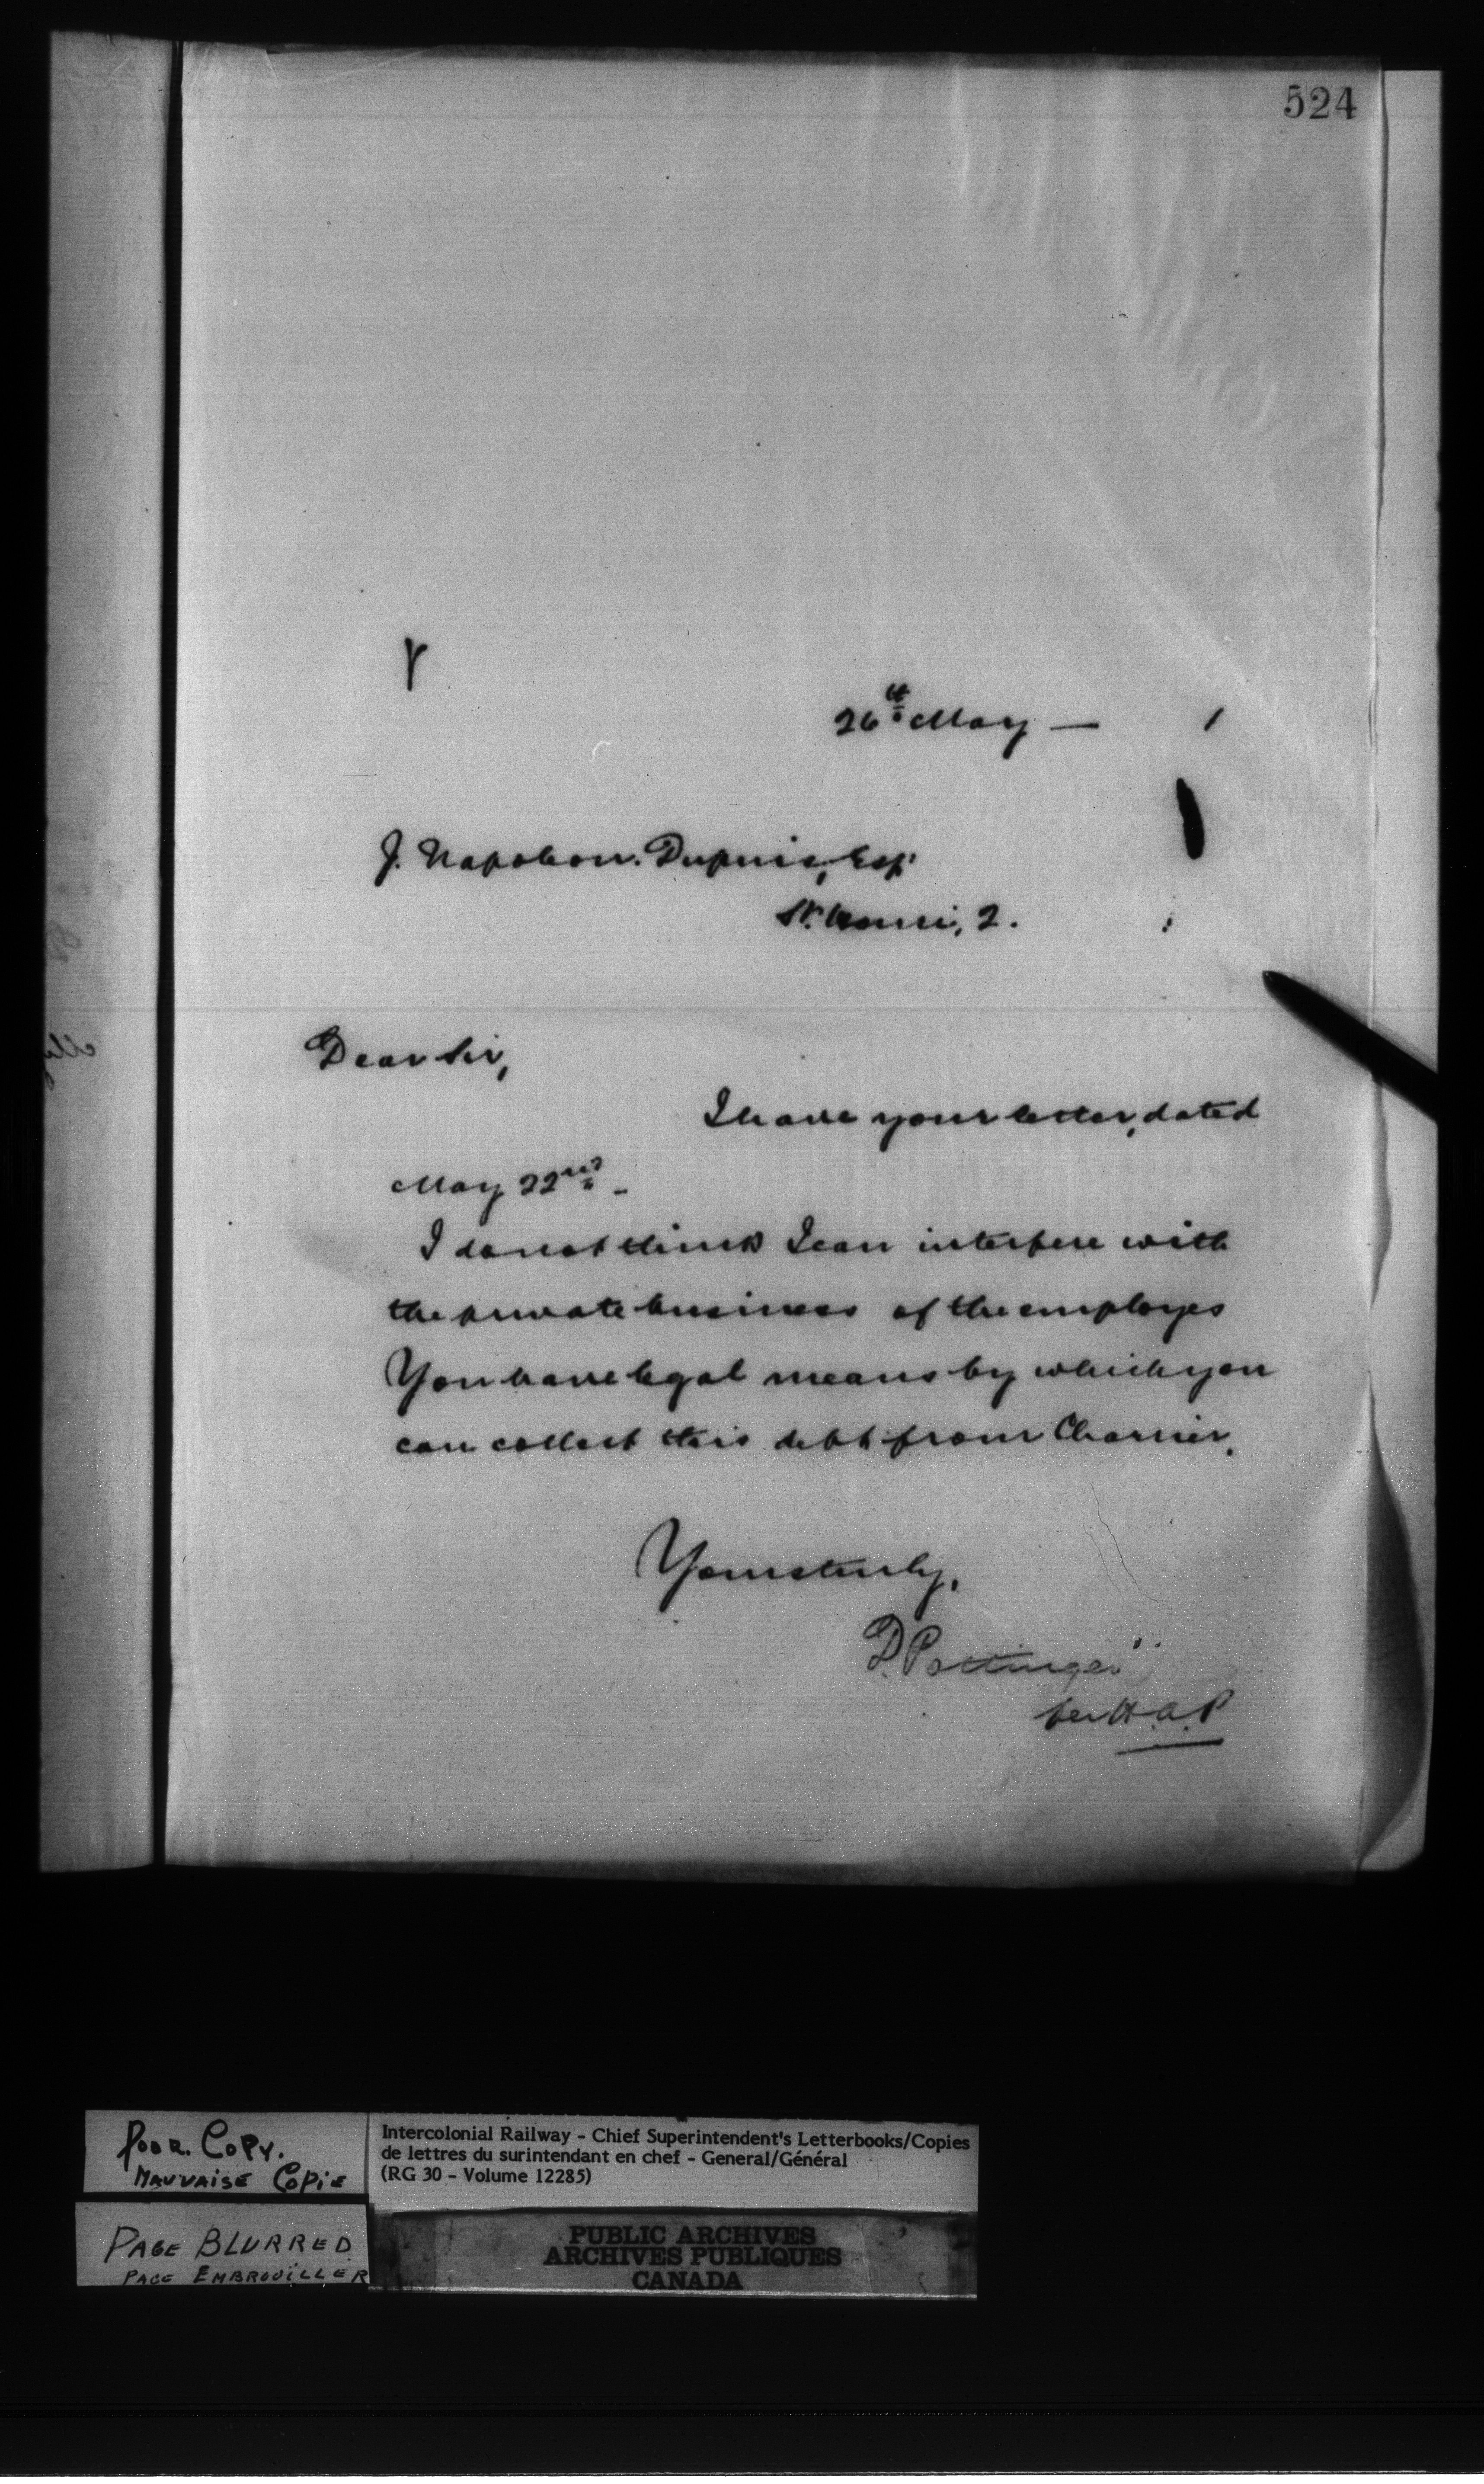 524
26th May —
J. Napoleon Dupuis, Esq.
St. Henri, 2.
Dear Sir,
I have your letter, dated
May 22nd –
I do not think I can interfere with
the private business of the employes
You have legal means by which you
can collect this debt from Charrier.
Yours truly,
D. Pottinger
per H.A.P
Poor. Copy.
Mauvaise Copie
Intercolonial Railway - Chief Superintendent's Letterbooks/Copies
de lettres du surintendant en chef - General/Général
(RG 30 - Volume 12285)
Page Blurred
Page Embrouiller
PUBLIC ARCHIVES
ARCHIVES PUBLIQUES
CANADA